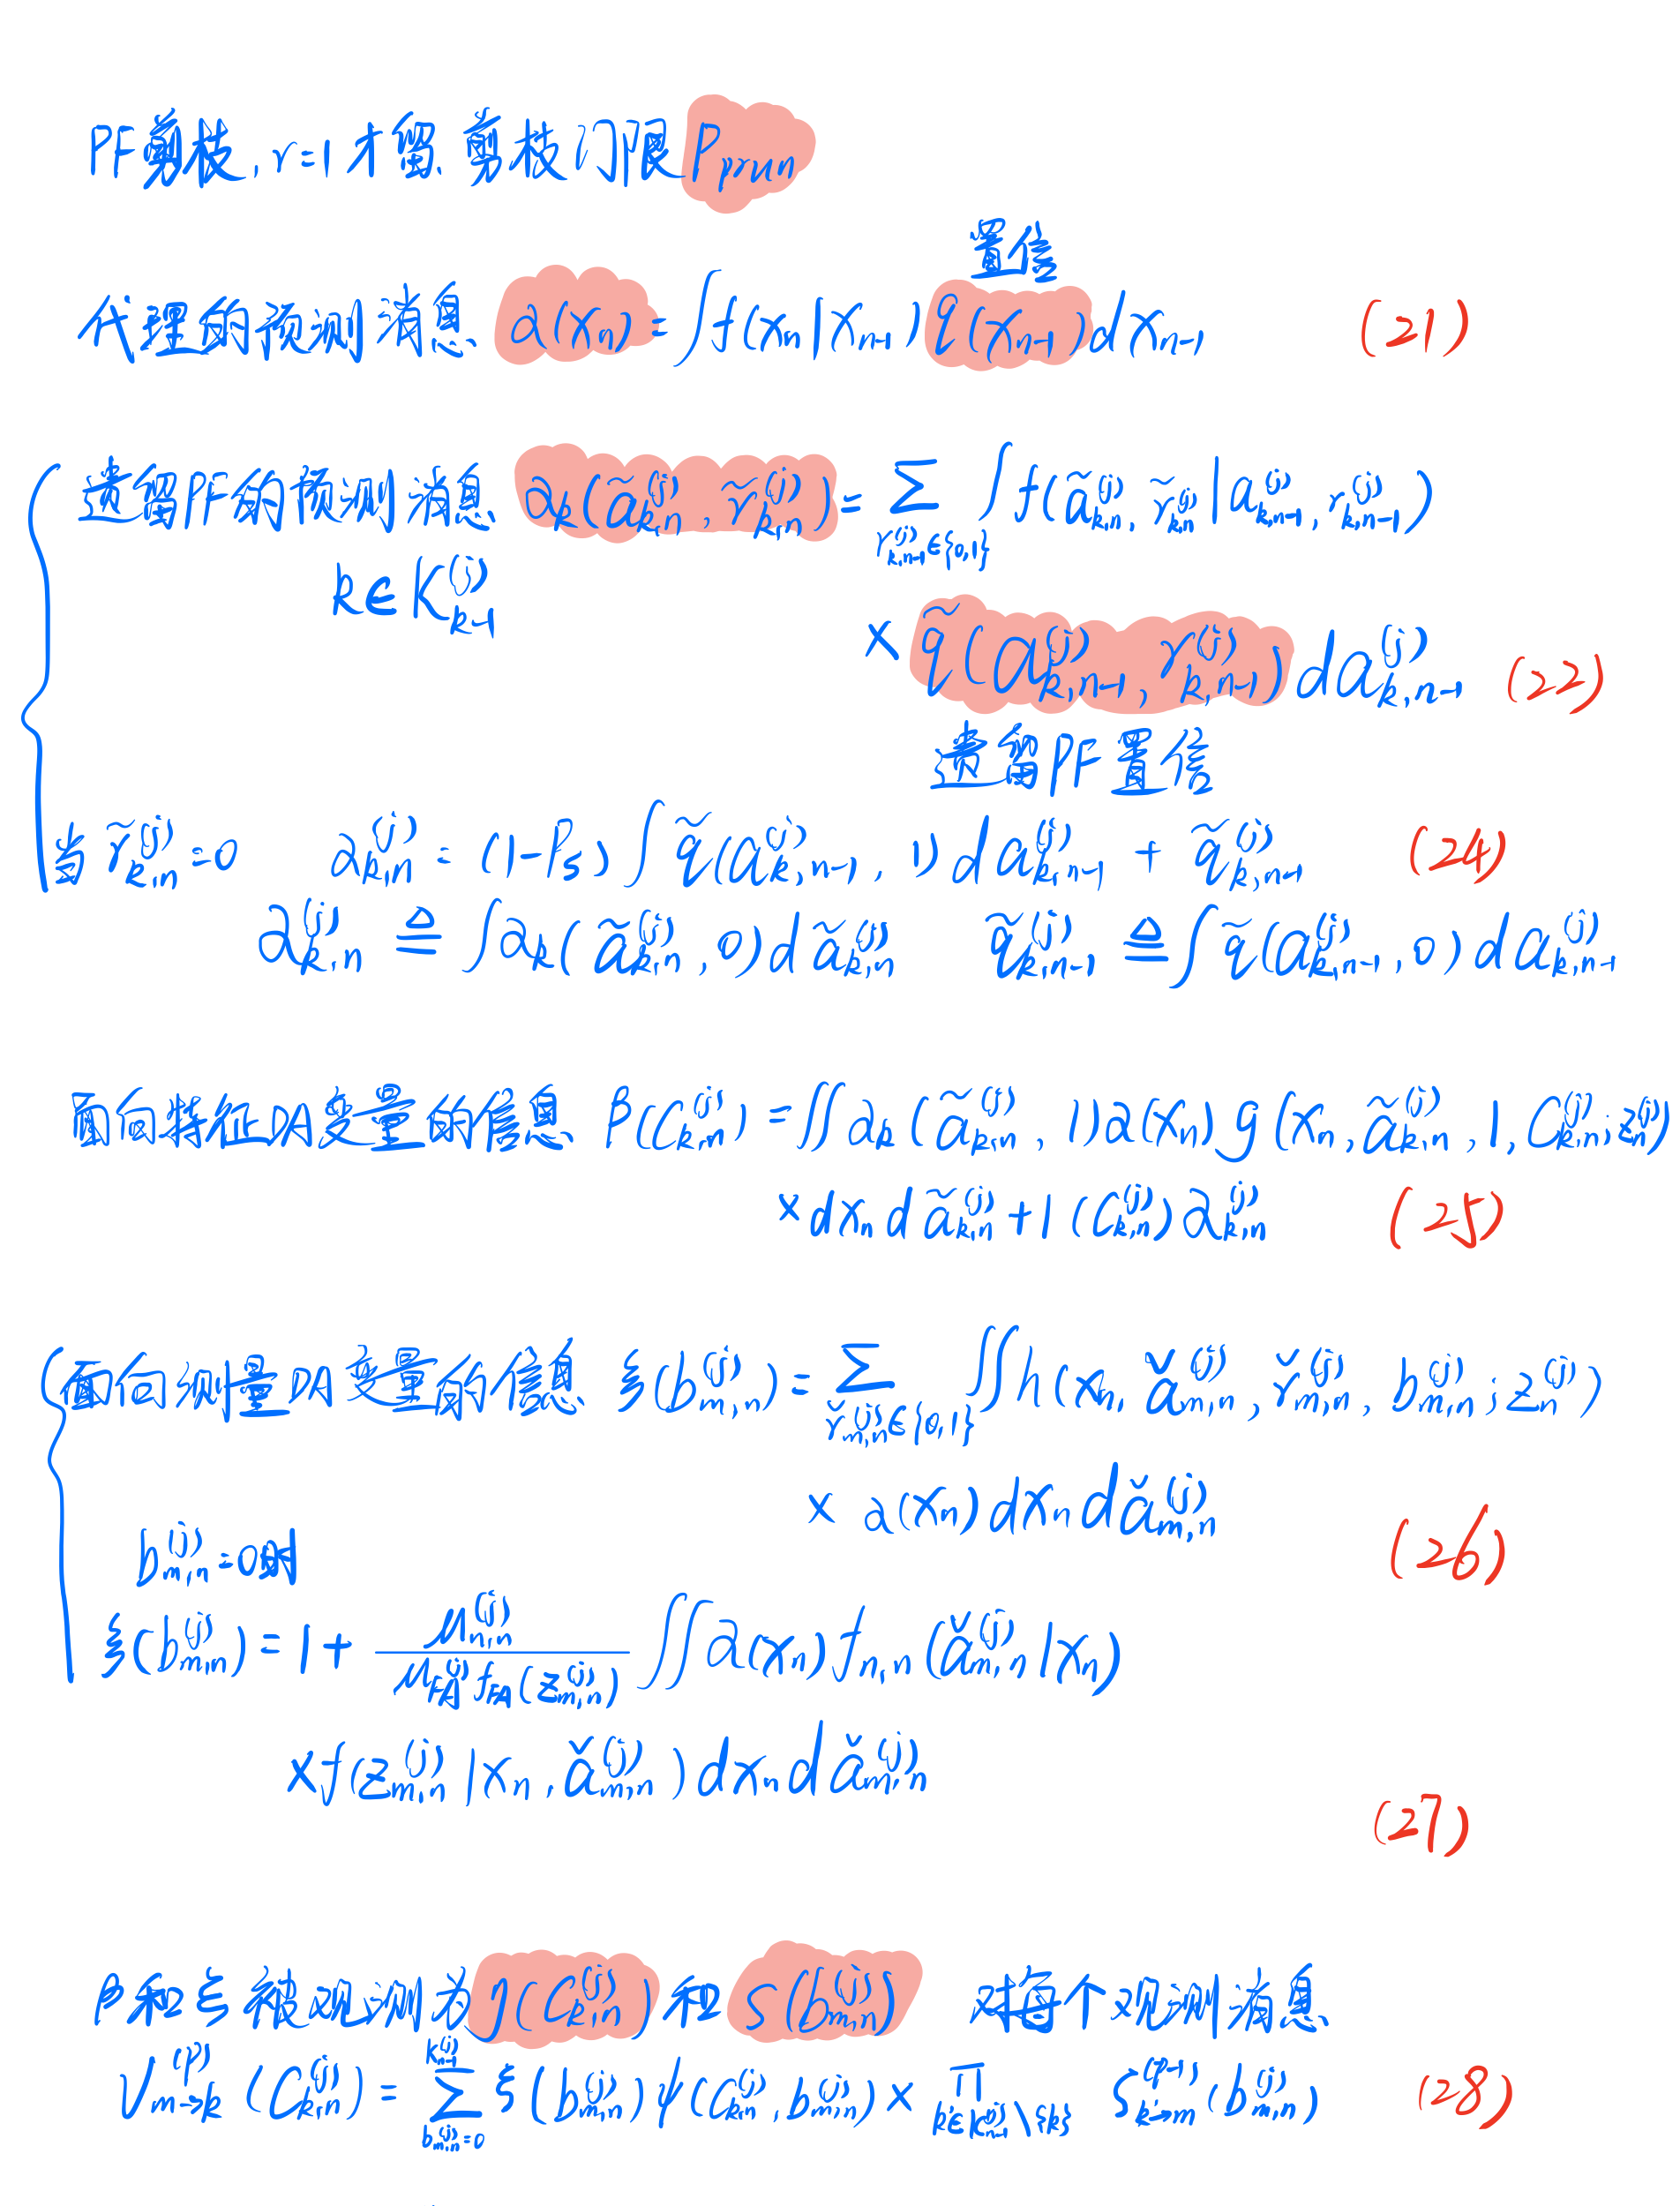 PF剪枝, r=1才留. 剪枝门限 P_{prun}
置信
代理的预测消息 α(x_n) = ∫ f(x_n|x_{n-1}) q(x_{n-1}) dx_{n-1} (21)
遗留PF的预测消息 α_k(ã_{k,n}^{(j)}, r̃_{k,n}^{(j)}) = Σ_{r_{k,n-1}^{(j)}∈{0,1}} ∫ f(ã_{k,n}^{(j)}, r̃_{k,n}^{(j)} | a_{k,n-1}^{(j)}, r_{k,n-1}^{(j)})
k∈K_{k-1}^{(j)}
× q̃(a_{k,n-1}^{(j)}, r_{k,n-1}^{(j)}) da_{k,n-1}^{(j)} (22)
遗留PF置信
当 r̃_{k,n}^{(j)}=0 α_{k,n}^{(j)} = (1-P_s) ∫ q̃(a_{k,n-1}^{(j)}, 1) da_{k,n-1}^{(j)} + q̃_{k,n-1}^{(j)} (24)
α_{k,n}^{(j)} ≜ ∫ α_k(ã_{k,n}^{(j)}, 0) dã_{k,n}^{(j)} q̃_{k,n-1}^{(j)} ≜ ∫ q̃(a_{k,n-1}^{(j)}, 0) da_{k,n-1}^{(j)}
面向特征DA变量的信息 β(c_{k,n}^{(j)}) = ∬ α_k(ã_{k,n}^{(j)}, 1) α(x_n) g(x_n, ã_{k,n}^{(j)}, 1, c_{k,n}^{(j)}; z_n^{(j)})
× dx_n dã_{k,n}^{(j)} + 1(c_{k,n}^{(j)}) α_{k,n}^{(j)} (25)
面向测量DA变量的信息 ξ(b_{m,n}^{(j)}) = Σ_{ř_{m,n}^{(j)}∈{0,1}} ∬ h(x_n, ǎ_{m,n}^{(j)}, ř_{m,n}^{(j)}, b_{m,n}^{(j)}; z_n^{(j)})
× α(x_n) dx_n dǎ_{m,n}^{(j)} (26)
b_{m,n}^{(j)}=0时
ξ(b_{m,n}^{(j)}) = 1 + \frac{μ_{n,n}^{(j)}}{μ_{FA}^{(j)} f_{FA}(z_{m,n}^{(j)})} ∬ α(x_n) f_{n,n}(ǎ_{m,n}^{(j)}|x_n)
× f(z_{m,n}^{(j)}|x_n, ǎ_{m,n}^{(j)}) dx_n dǎ_{m,n}^{(j)}
(27)
β和ξ被观测为 η(c_{k,n}^{(j)}) 和 ς(b_{m,n}^{(j)}) 对每个观测消息
ν_{m→k}^{(p)}(c_{k,n}^{(j)}) = Σ_{b_{m,n}^{(j)}=0}^{K_{n-1}^{(j)}} ξ(b_{m,n}^{(j)}) ψ(c_{k,n}^{(j)}, b_{m,n}^{(j)}) × Π_{k'∈K_{n-1}^{(j)}\{k}} ζ_{k'→m}^{(p-1)}(b_{m,n}^{(j)}) (28)